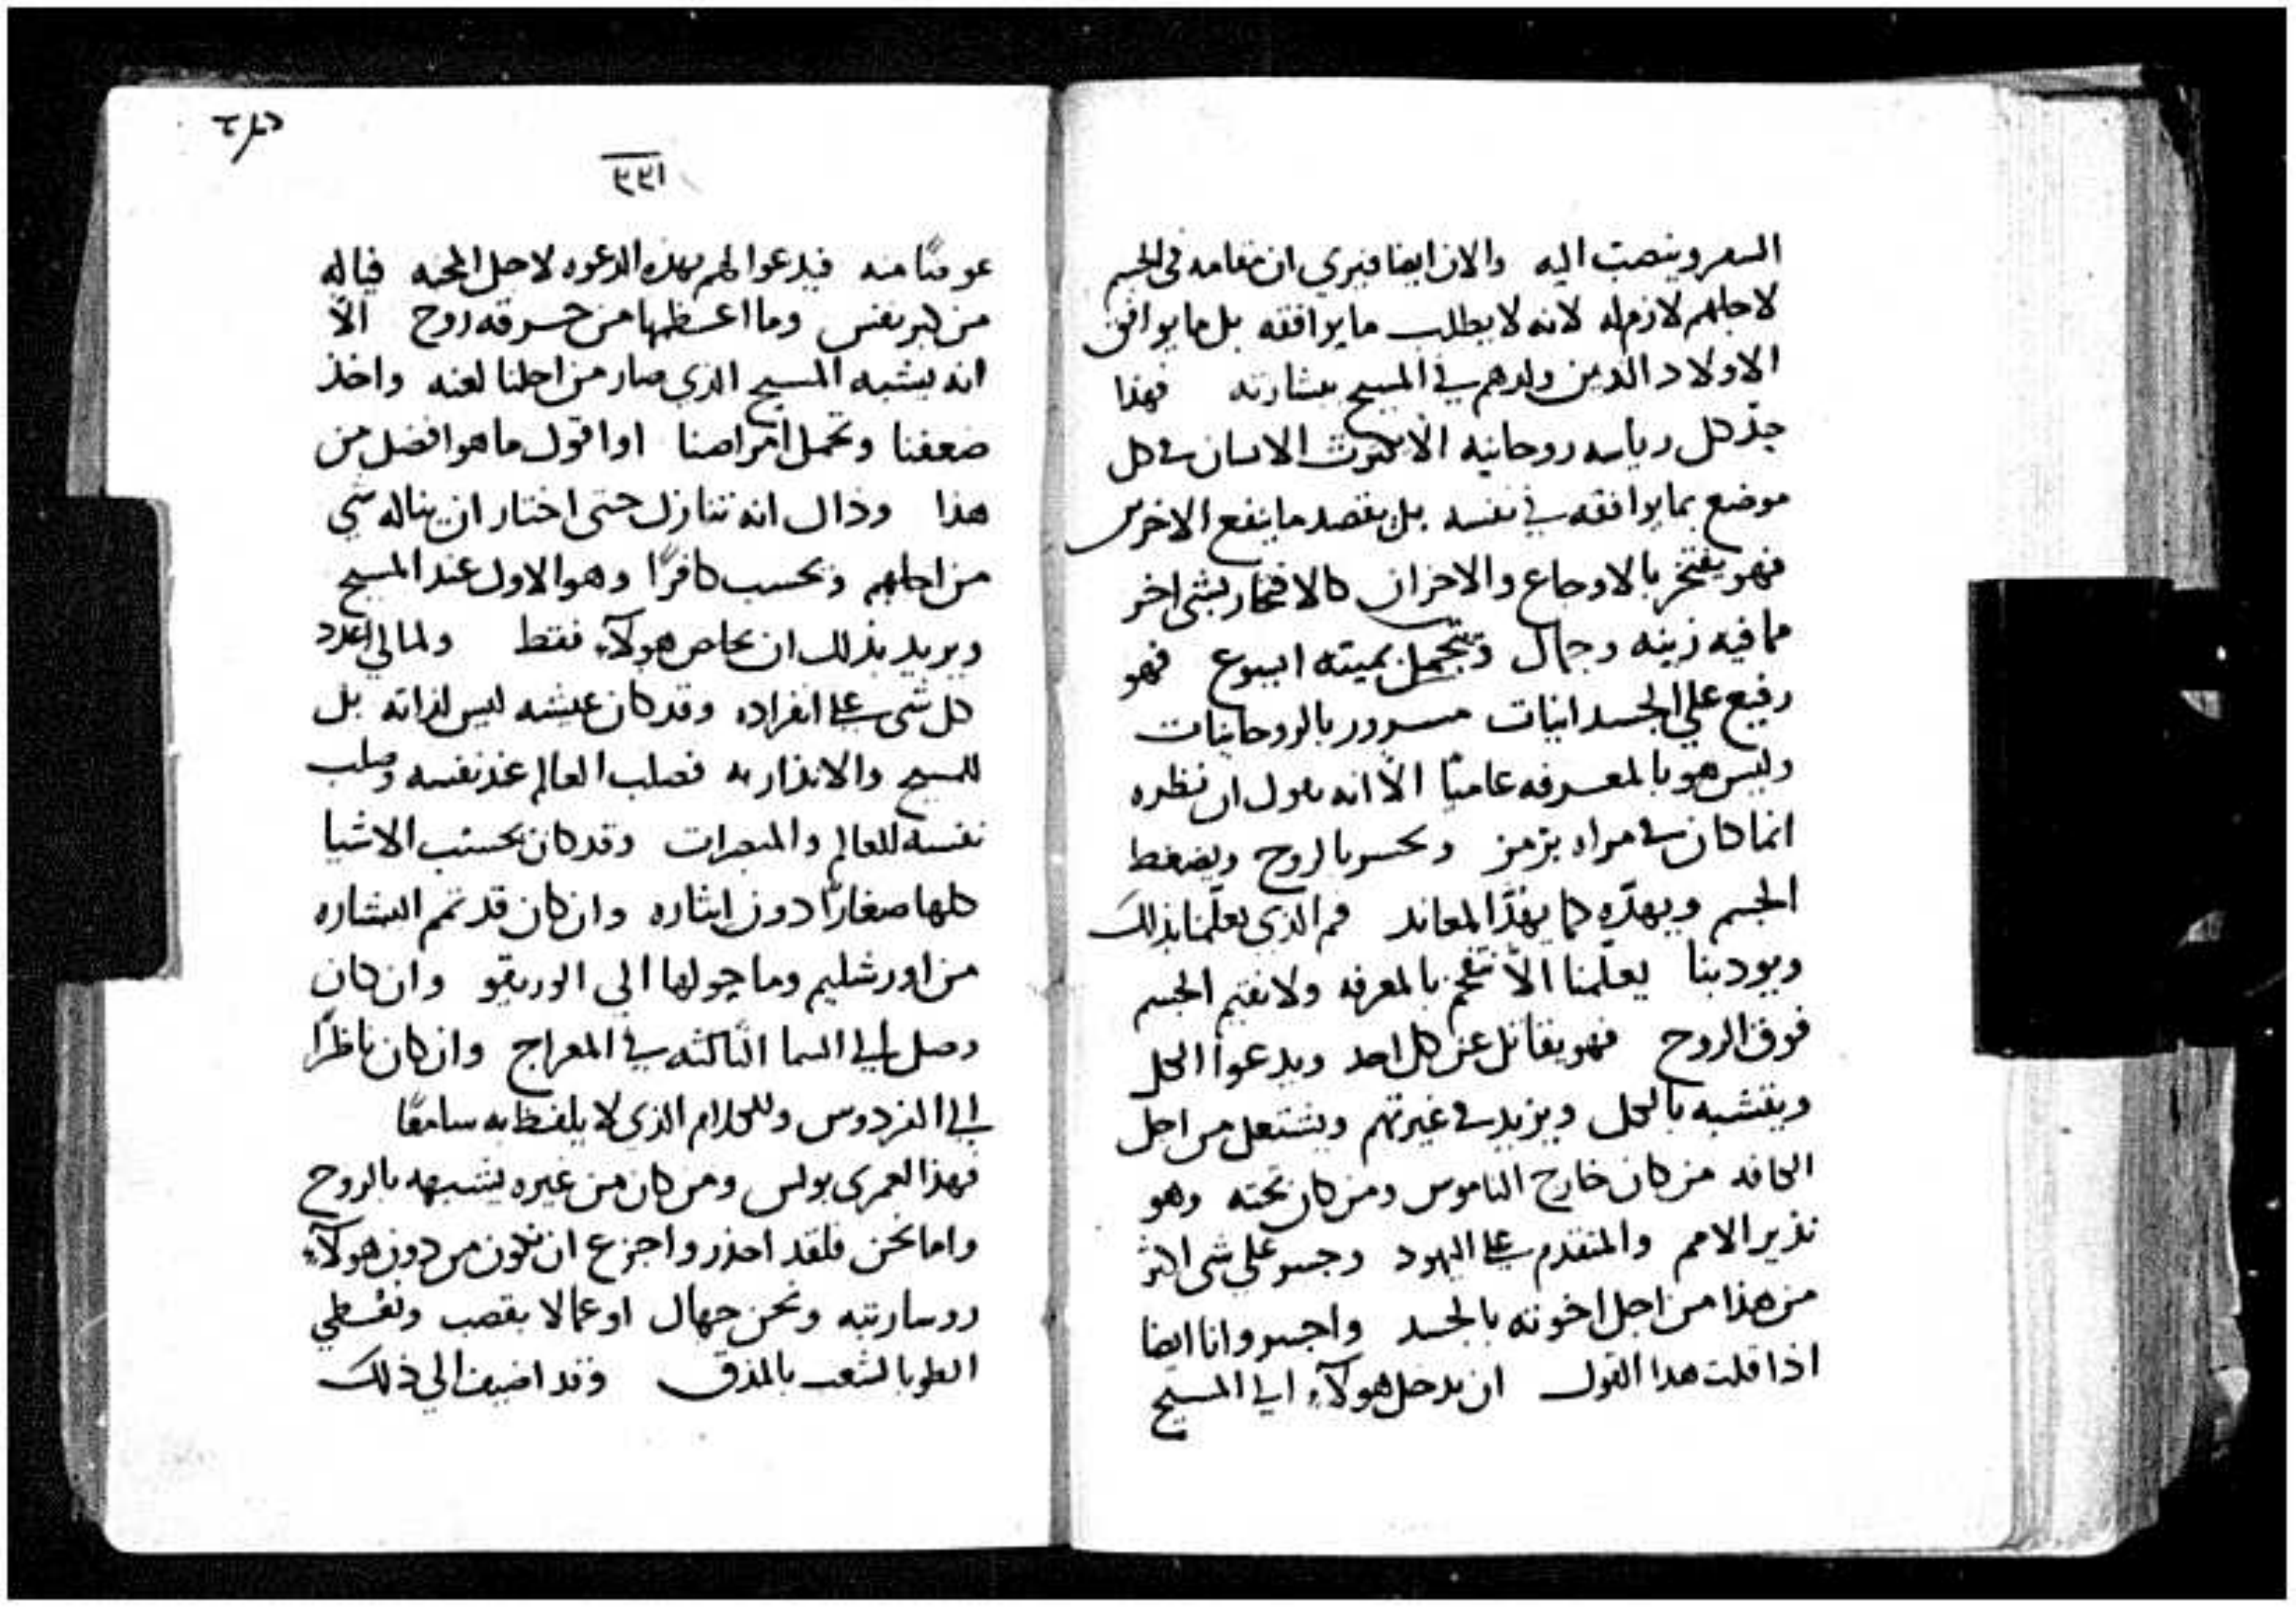 السفر وينصت اليه والان ايضا فيري ان مقامه في الجسم
لاجلهم لازم له لانه لا يطلب ما يوافقه بل ما يوافق
الاولاد الذين ولدهم في المسيح ببشارته فهذا
حد كل رياسه روحانيه الا يكترث الانسان في كل
موضع بما يوافقه في نفسه بل يقصد ما ينفع الاخرين
فهو يفتخر بالاوجاع والاحزان كالافتخار بشي اخر
مما فيه زينه وجمال وتتجمل بميته ايسوع فهو
رفيع علي الجسدانيات مسرور بالروحانيات
وليس هو بالمعرفه عاميًا الا انه يقول ان نظره
انما كان في مراه برمز ويحسر بالروح ويضغط
الجسم ويهدّه كما يهدّ المعاند فم الذي يعلّمنا بذلك
ويودبنا يعلّمنا الا نفخم بالمعرفه ولا نقيم الجسم
فوق الروح فهو يقاتل عن كل احد ويدعوا الكل
ويتشبه بالكل ويزيد في غيرتهم ويشتعل من اجل
الكافه من كان خارج الناموس ومن كان تحته وهو
نذير الامم والمتقدم علي اليهود وجسر علي شي اكثر
من هذا من اجل اخوته بالجسد واجسر وانا ايضا
اذا قلت هذا القول ان يدخل هولآء الي المسيح
٢٩١
عوضًا منه فيدعوا لهم بهذه الدعوه لاجل المحبه فياله
من كبر نفس وما اعظمها من حرقه روح الا
انه يشبه المسيح الذي صار من اجلنا لعنه واخذ
ضعفنا وتحمل امراضنا او اقول ما هو افضل من
هذا وذاك انه تنازل حتى اختار ان يناله شي
من اجلهم ويحسب كافرًا وهو الاول عند المسيح
ويريد بذلك ان يخلص هولآء فقط ولما لي اعدد
كل شي علي انفراده وقد كان عيشه ليس لذاته بل
للمسيح والانذار به فصلب العالم عند نفسه وصلب
نفسه للعالم والمبصرات وقد كان يحتسب الاشيا
كلها صغارًا دون ايثاره وان كان قد تمم البشاره
من اورشليم وما حولها الي الوريقو وان كان
وصل الي السما الثالثه في المعراج وان كان ناظرًا
الي الفردوس وللكلام الذي لا يلفظ به سامعًا
فهذا لعمري بولس ومن كان من غيره يشبهه بالروح
واما نحن فلقد احذر واجزع ان نكون من دون هولآء
روسا رتبه ونحن جهال او عمالا بقصب ونعْطي
الطوبا لشعب بالمذق وقد اضيف الي ذلك